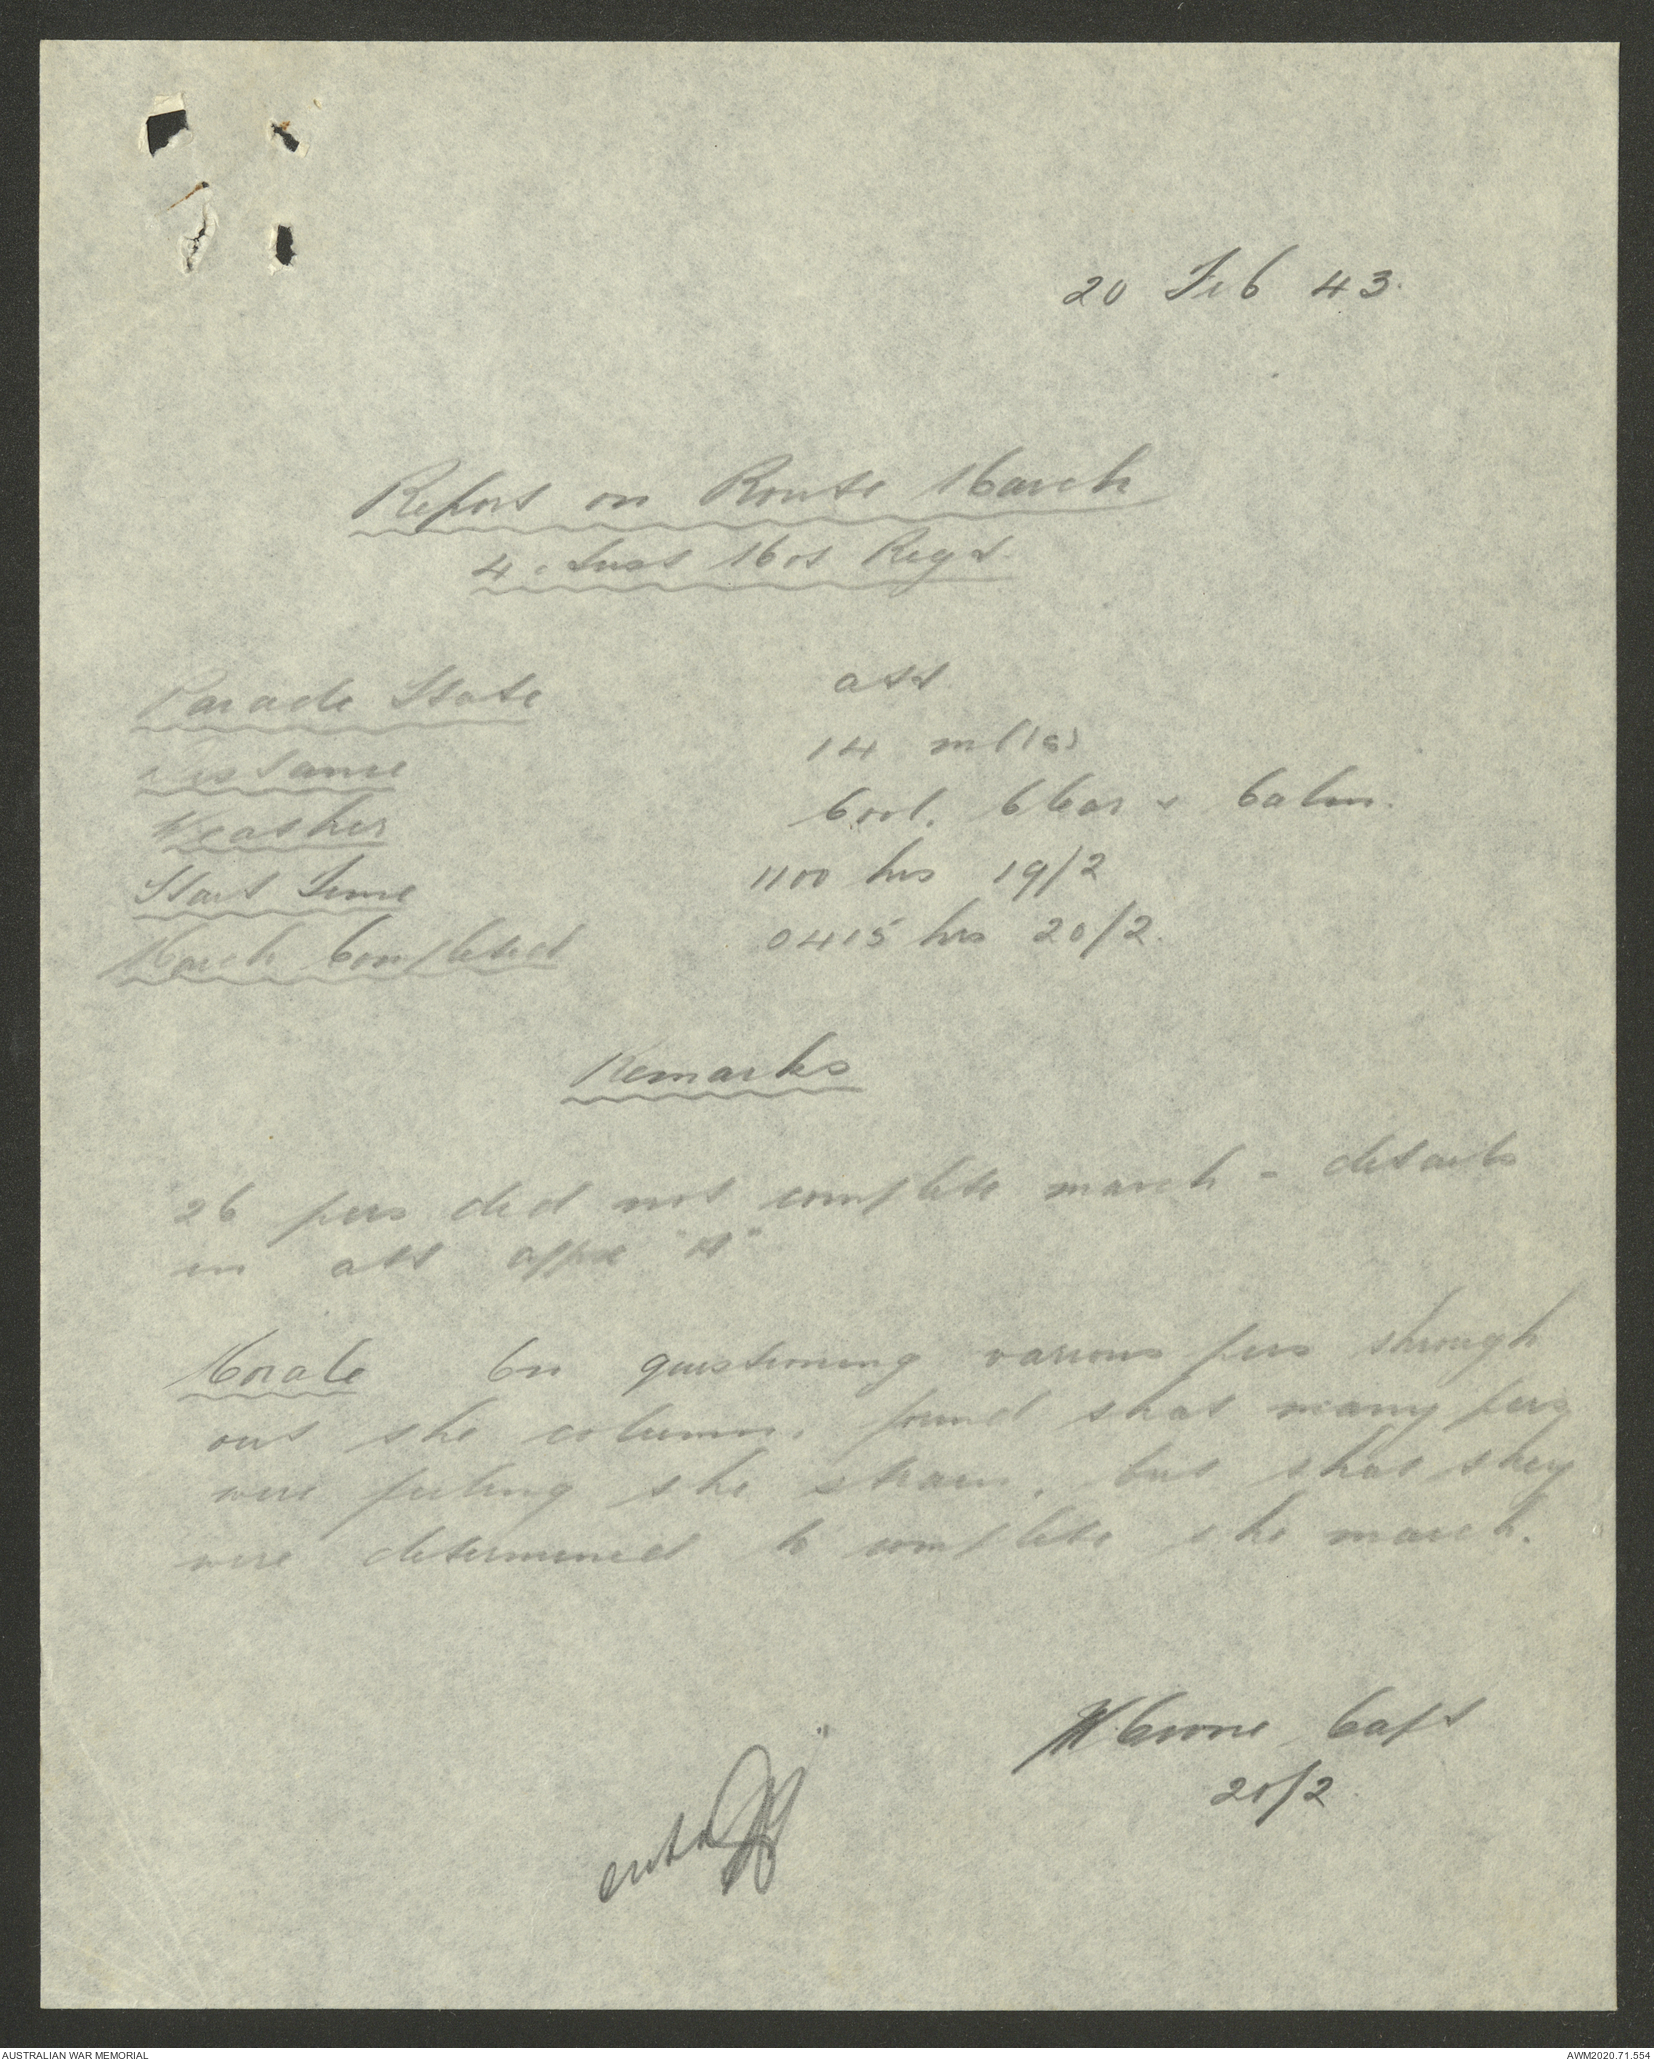 20 Feb 43.
Report on Route March
4. Aust Mot Regt.
Parade State att
Distance 14 miles
Weather Cool, Clear & Calm.
Start Time 1100 hrs 19/2
March Completed 0415 hrs 20/2.
Remarks
26 pers did not complete march - details
in att appx "A"
Morale On questioning various pers through
out the column, found that many pers
were feeling the strain, but that they
were determined to complete the march.
Capt
20/2
AUSTRALIAN WAR MEMORIAL
AWM2020.71.554